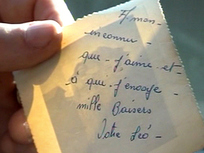 A mon
inconnu -
que - j'aime et -
à qui - j'envoye -
mille Baisers
Votre Léo -